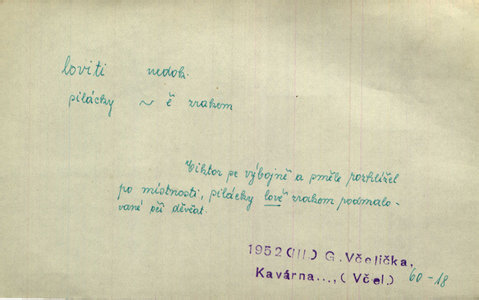 loviti nedok.
pilácky ~ ě zrakem
Viktor se výbojně a směle rozhlížel
po místnosti, pilácky lově zrakem podmalo-
vané oči děvčat.
1952 (III.) G. Včelička,
Kavárna..., (Včel.) 60-18